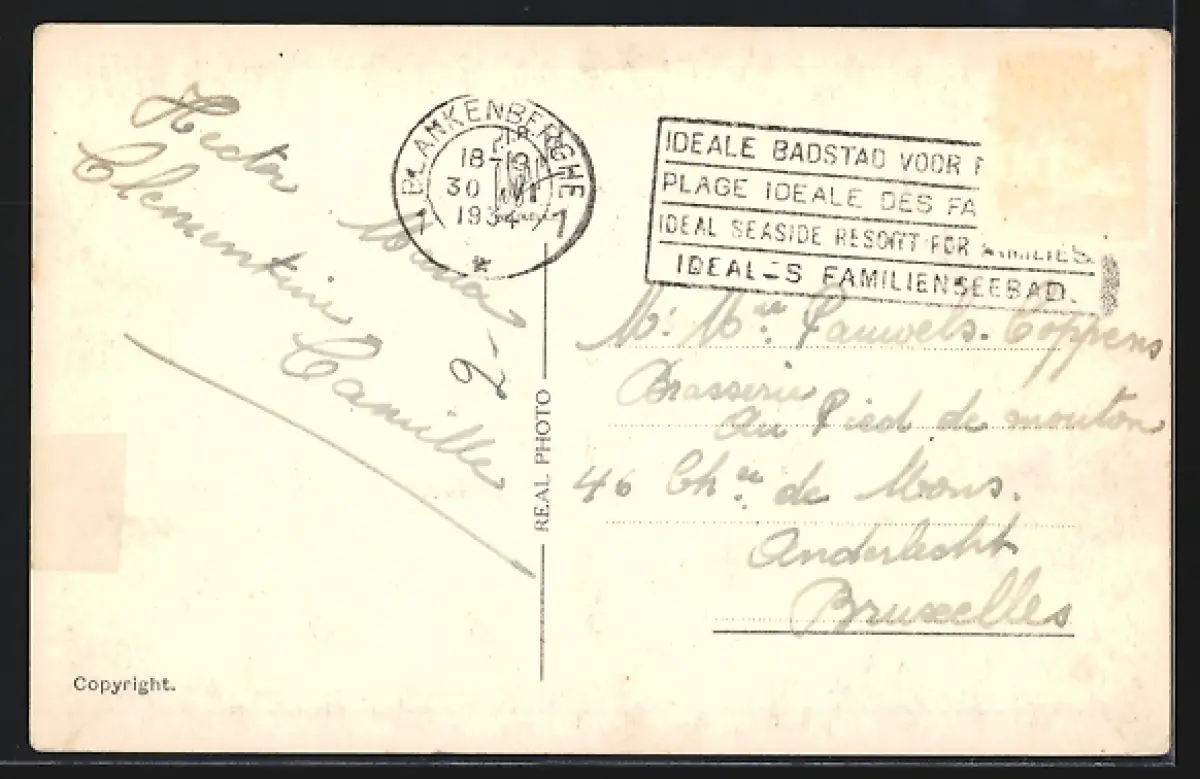 Hector
Clementine
Camille
2-
BLANKENBERGHE
18-19
30
1934
*
IDEALE BADSTAD VOOR F
PLAGE IDEALE DES FA
IDEAL SEASIDE RESORT FOR FAMILIES.
IDEALES FAMILIENSEEBAD.
Mr Mme Pauwels-Coppens
Brasserie
Au Pied de mouton
46 Chée de Mons.
Anderlecht
Bruxelles
REAL PHOTO
Copyright.